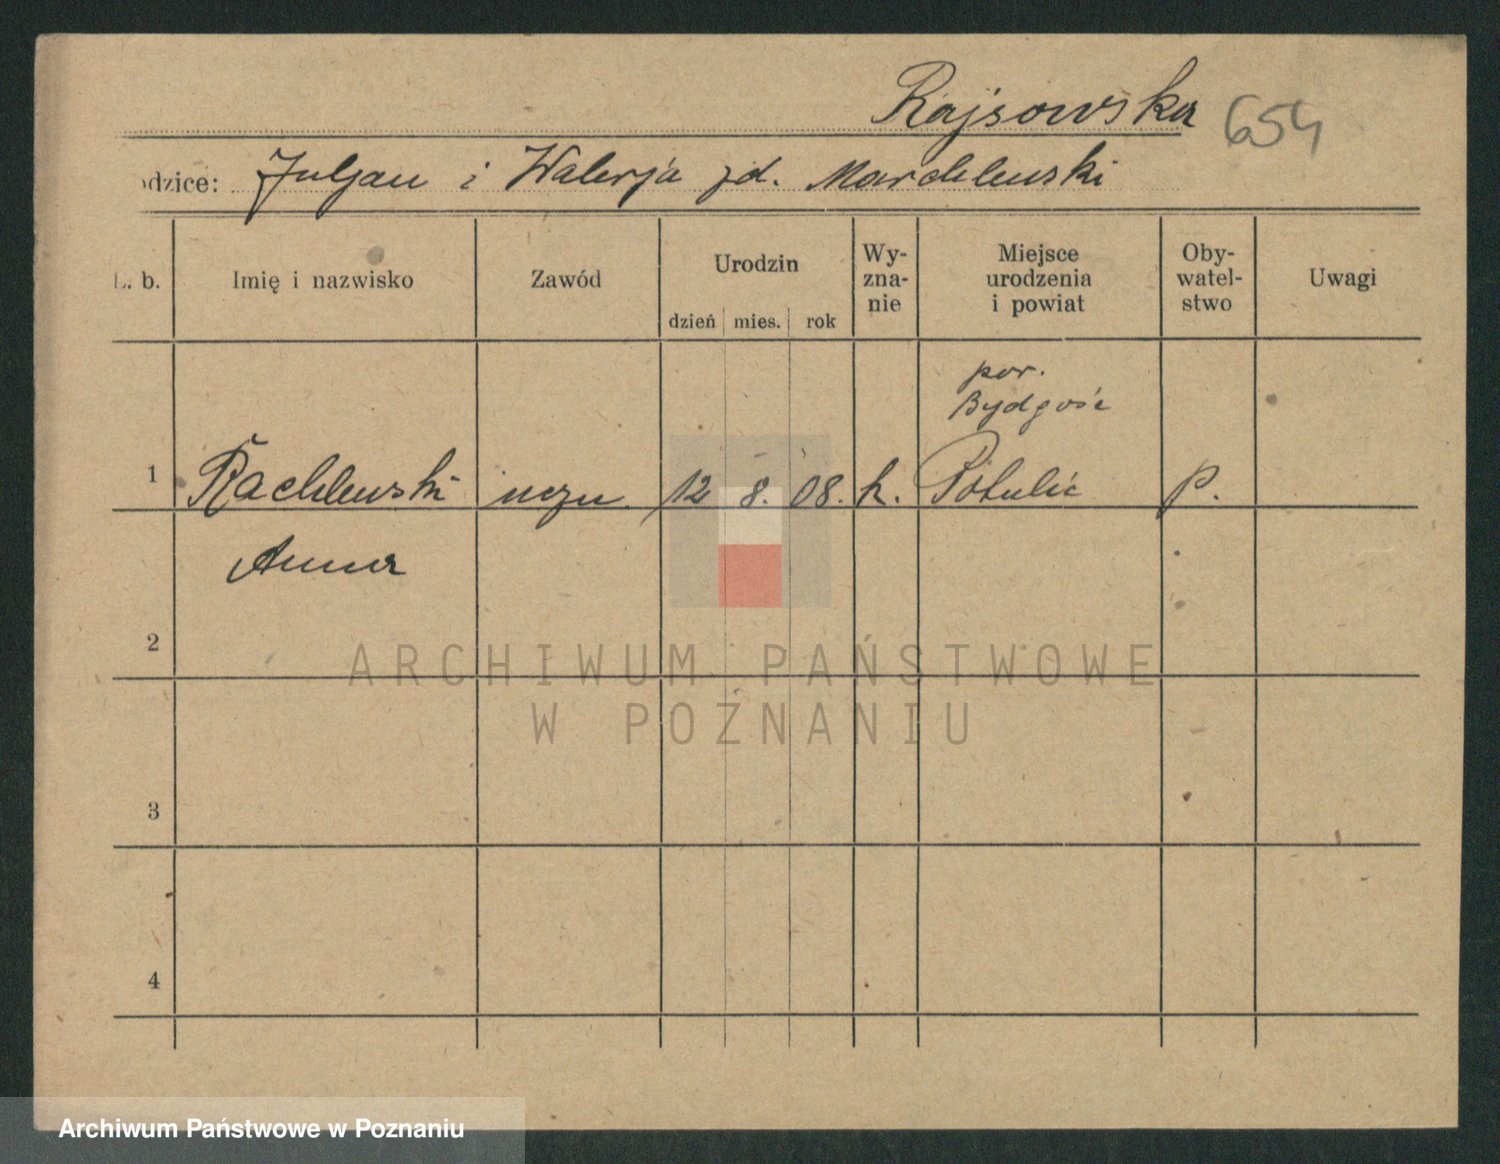 Rajsowska 654
odzice: Juljan i Walerja zd. Marchlewski
L. b. Imię i nazwisko Zawód Urodzin dzień mies. rok Wy-zna-nie Miejsce urodzenia i powiat Oby-watel-stwo Uwagi
pow.
Bydgość
1 Rachlewski uczn. 12 8. 08. k. Potulic P.
Anna
2
ARCHIWUM PAŃSTWOWE
W POZNANIU
3
4
Archiwum Państwowe w Poznaniu